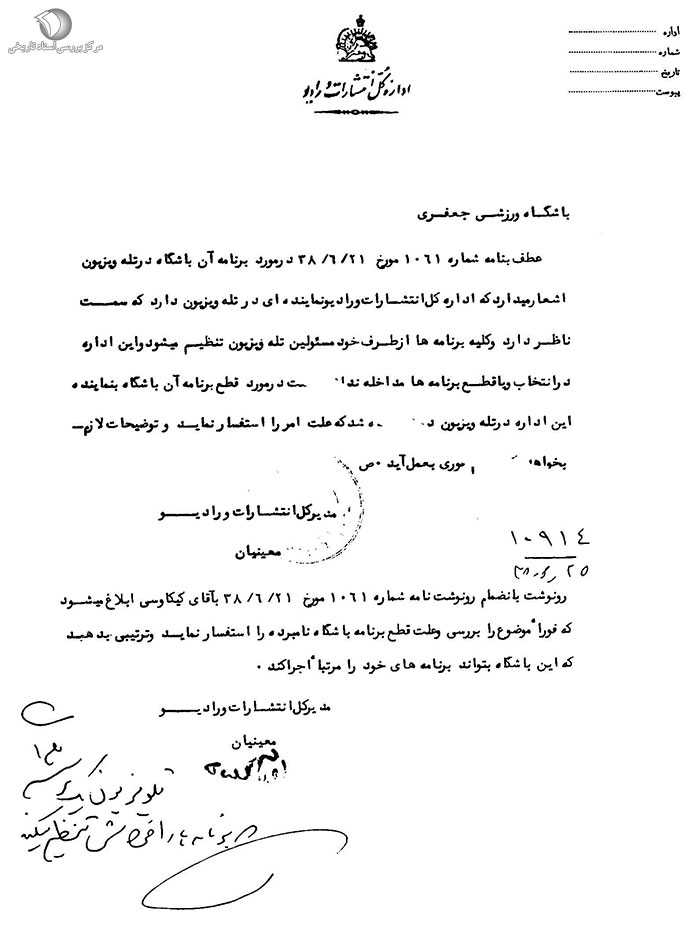 مرکز بررسی اسناد تاریخی
اداره
شماره
تاریخ
پیوست
اداره کل انتشارات و رادیو
باشگاه ورزشی جعفری
عطف بنامه شماره ۱۰۶۱ مورخ ۳۸/۶/۲۱ در مورد برنامه آن باشگاه در تله ویزیون
اشعار میدارد که اداره کل انتشارات و رادیو نماینده ای در تله ویزیون دارد که سمت
ناظر دارد و کلیه برنامه ها از طرف خود مسئولین تله ویزیون تنظیم میشود و این اداره
در انتخاب و یا قطع برنامه ها مداخله ندا ت در مورد قطع برنامه آن باشگاه بنماینده
این اداره در تله ویزیون د ه شد که علت امر را استفسار نماید و توضیحات لازم
بخواه وری بعمل آید ۰ ص
مدیر کل انتشارات و رادیو
معینیان
۱۰۹۱۴
رونوشت بانضمام رونوشت نامه شماره ۱۰۶۱ مورخ ۳۸/۶/۲۱ بآقای کیکاوسی ابلاغ میشود
که فوراً موضوع را بررسی وعلت قطع برنامه باشگاه نامبرده را استفسار نماید وترتیبی بدهید
که این باشگاه بتواند برنامه های خود را مرتباً اجرا کند ۰
مدیر کل انتشارات و رادیو
معینیان
تلویزیون
برنامه ها را خودش تنظیم میکند